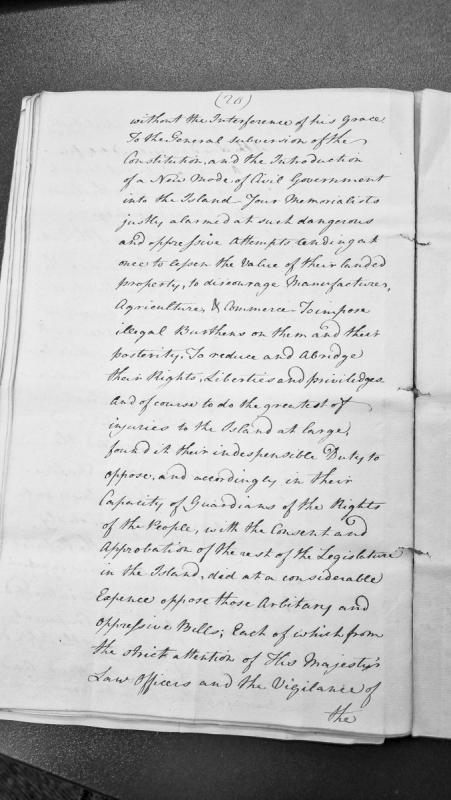 (28)
without the Interference of his Grace,
To the General subversion of the
Constitution, and the Introduction
of a New Mode of Civil Government
into the Island - Your Memorialists
justly alarmed at such dangerous
and oppressive Attempts tending at
once to lessen the Value of their landed
property, to discourage Manufactures,
Agriculture, & Commerce - To impose
illegal Burthens on them and their
posterity, To reduce and Abridge
their Rights, Liberties and priviledges
And of course to do the greatest of
injuries to the Island at large,
found it their indespensible Duty to
oppose, and accordingly in their
Capacity of Guardians of the Rights
of the People, with the Consent and
Approbation of the rest of the Legislature
in the Island, did at a considerable
Expence oppose those Arbitary and
oppressive Bills; Each of which from
the strict attention of His Majesty's
Law Officers and the Vigilance of
the